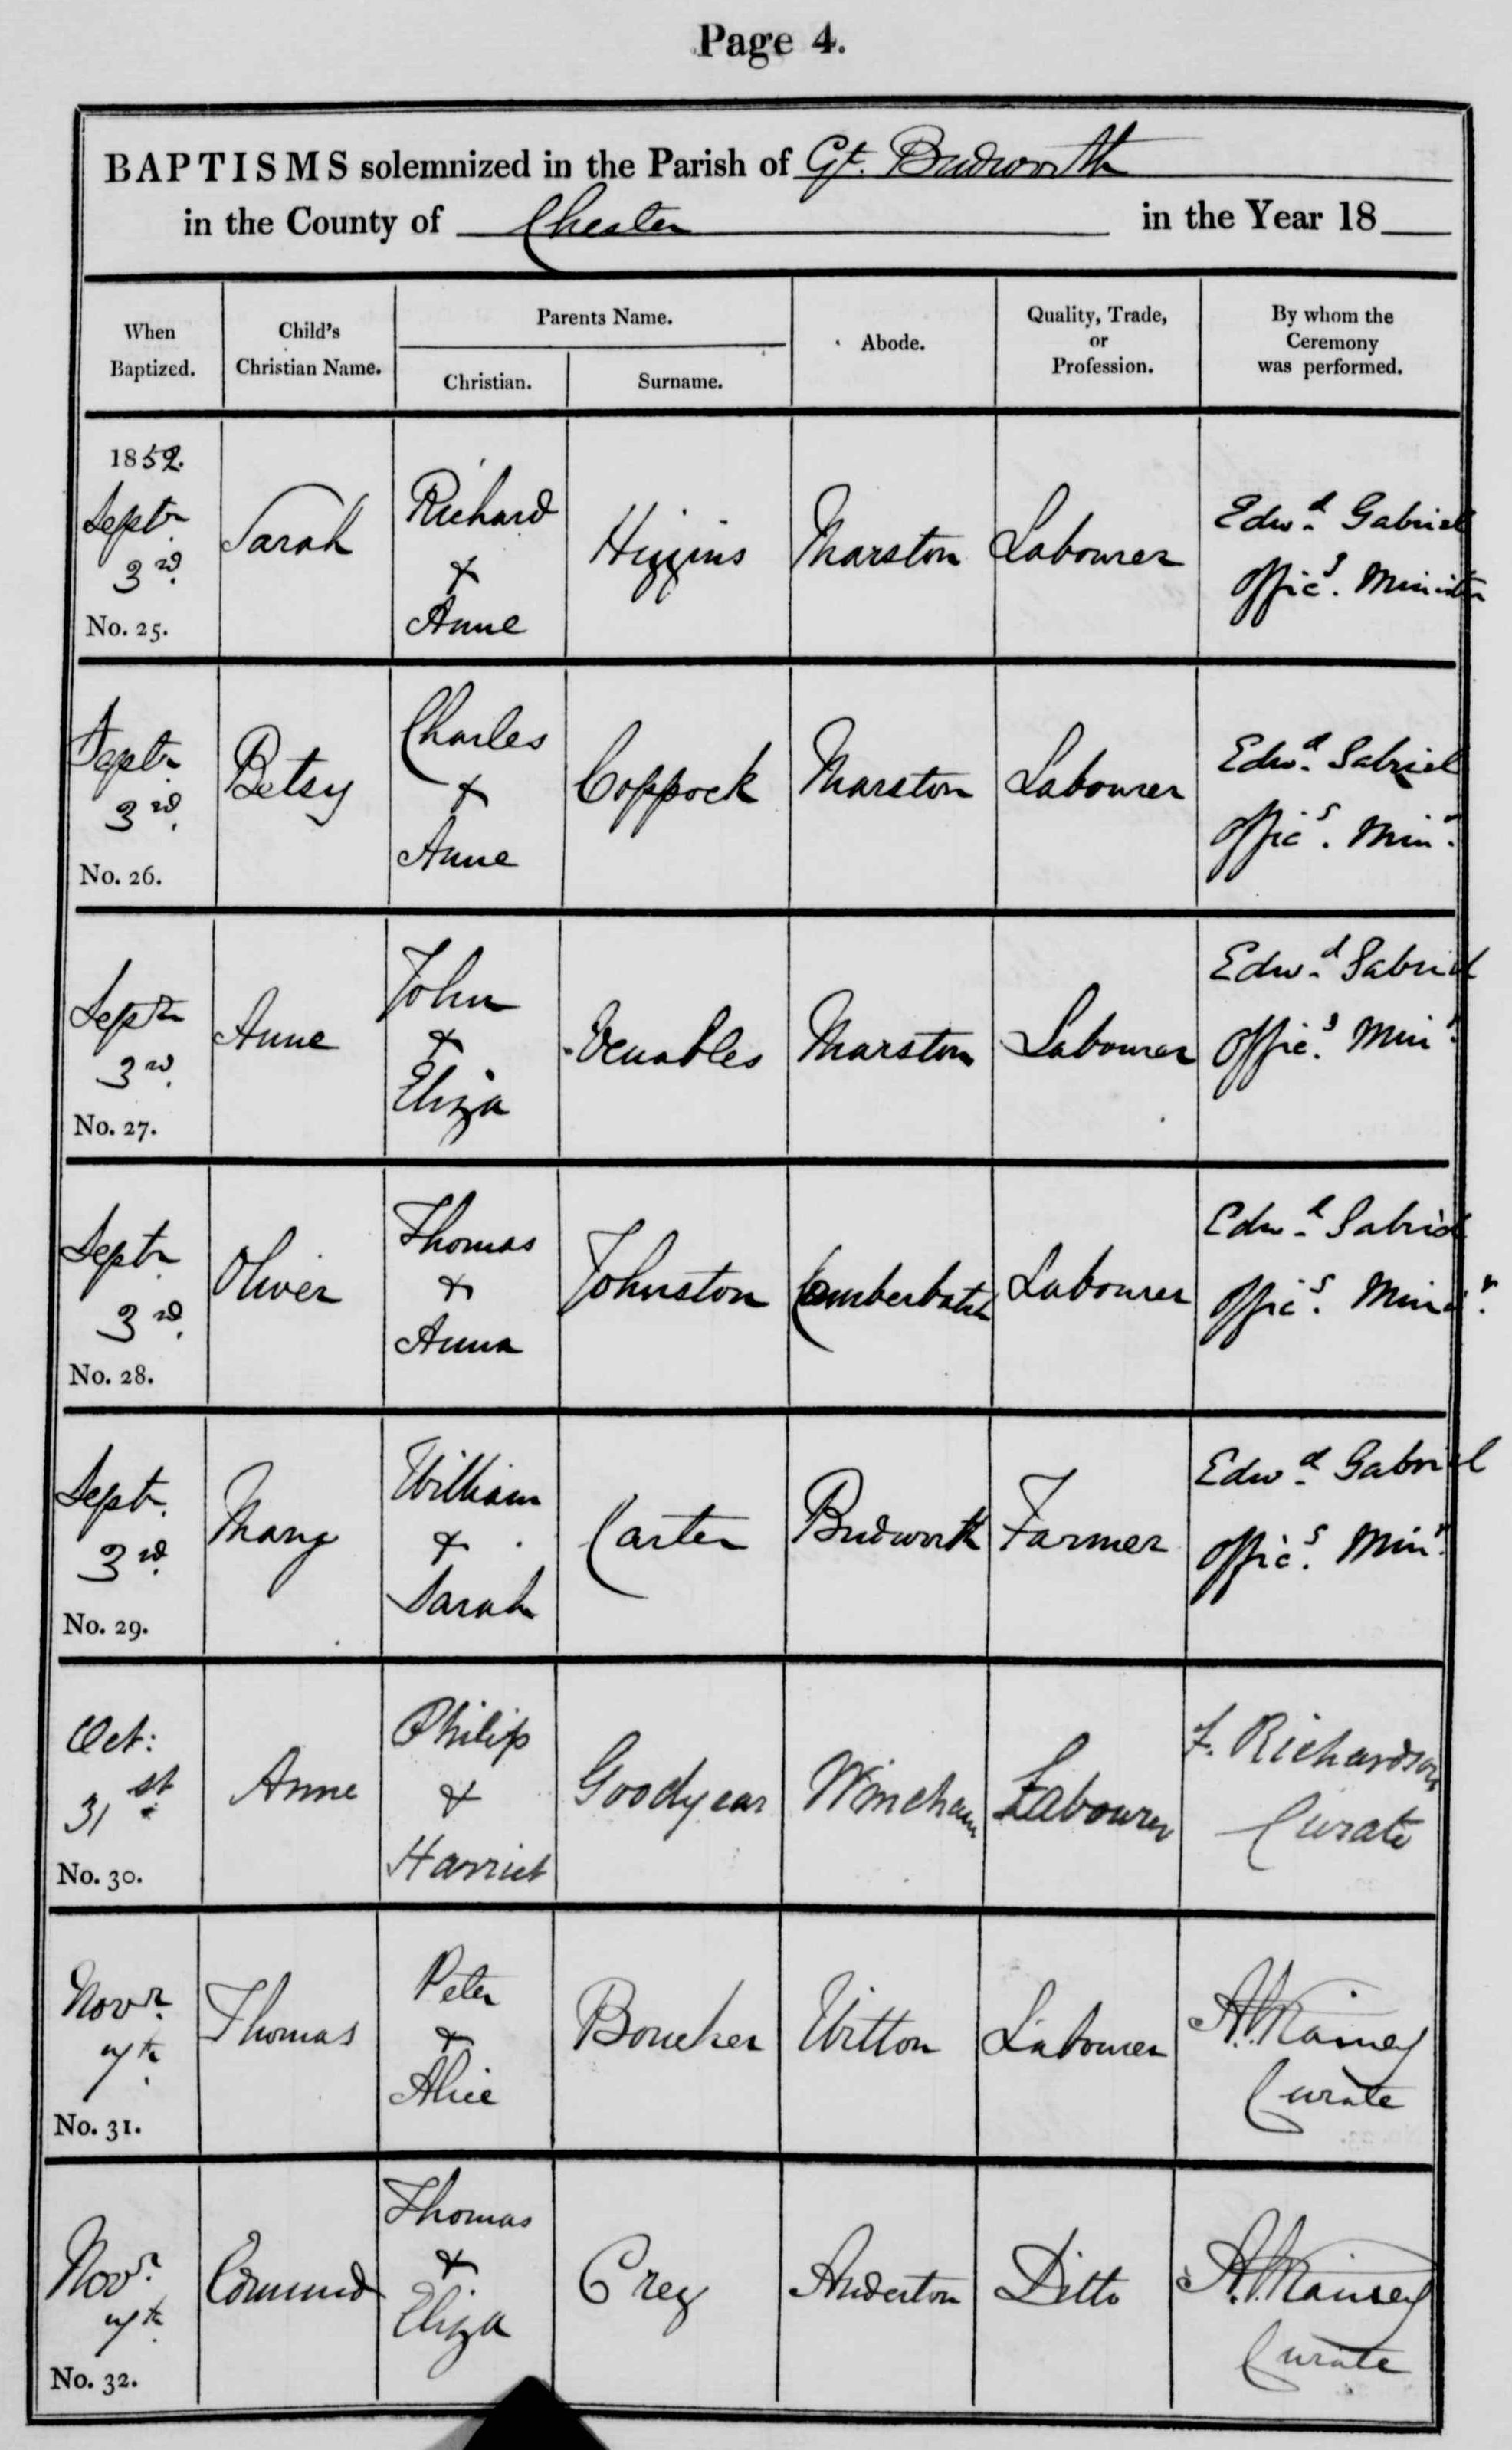 Page 4.
BAPTISMS solemnized in the Parish of Gt. Budworth
in the County of Chester in the Year 18
When Baptized.
Child's Christian Name.
Parents Name.
Christian.
Surname.
Abode.
Quality, Trade, or Profession.
By whom the Ceremony was performed.
1852.
Septr 3rd. No. 25.
Sarah
Richard & Anne
Higgins
Marston
Labourer
Edwd Gabriel Officg. Minister
Septr 3rd. No. 26.
Betsy
Charles & Anne
Coppock
Marston
Labourer
Edwd Gabriel Officg. Minr.
Septr 3rd. No. 27.
Anne
John & Eliza
Venables
Marston
Labourer
Edwd Gabriel Officg. Minr.
Septr 3rd. No. 28.
Oliver
Thomas & Anna
Johnston
Comberbatch
Labourer
Edwd Gabriel Officg. Minr.
Septr. 3rd. No. 29.
Mary
William & Sarah
Carter
Budworth
Farmer
Edwd Gabriel Officg. Minr.
Oct: 31st No. 30.
Anne
Philip & Harriet
Goodyear
Wincham
Labourer
F. Richardson Curate
Novr. 7th. No. 31.
Thomas
Peter & Alice
Boucher
Witton
Labourer
Curate
Novr. 7th. No. 32.
Edmund
Thomas & Eliza
Grey
Anderton
Ditto
Curate